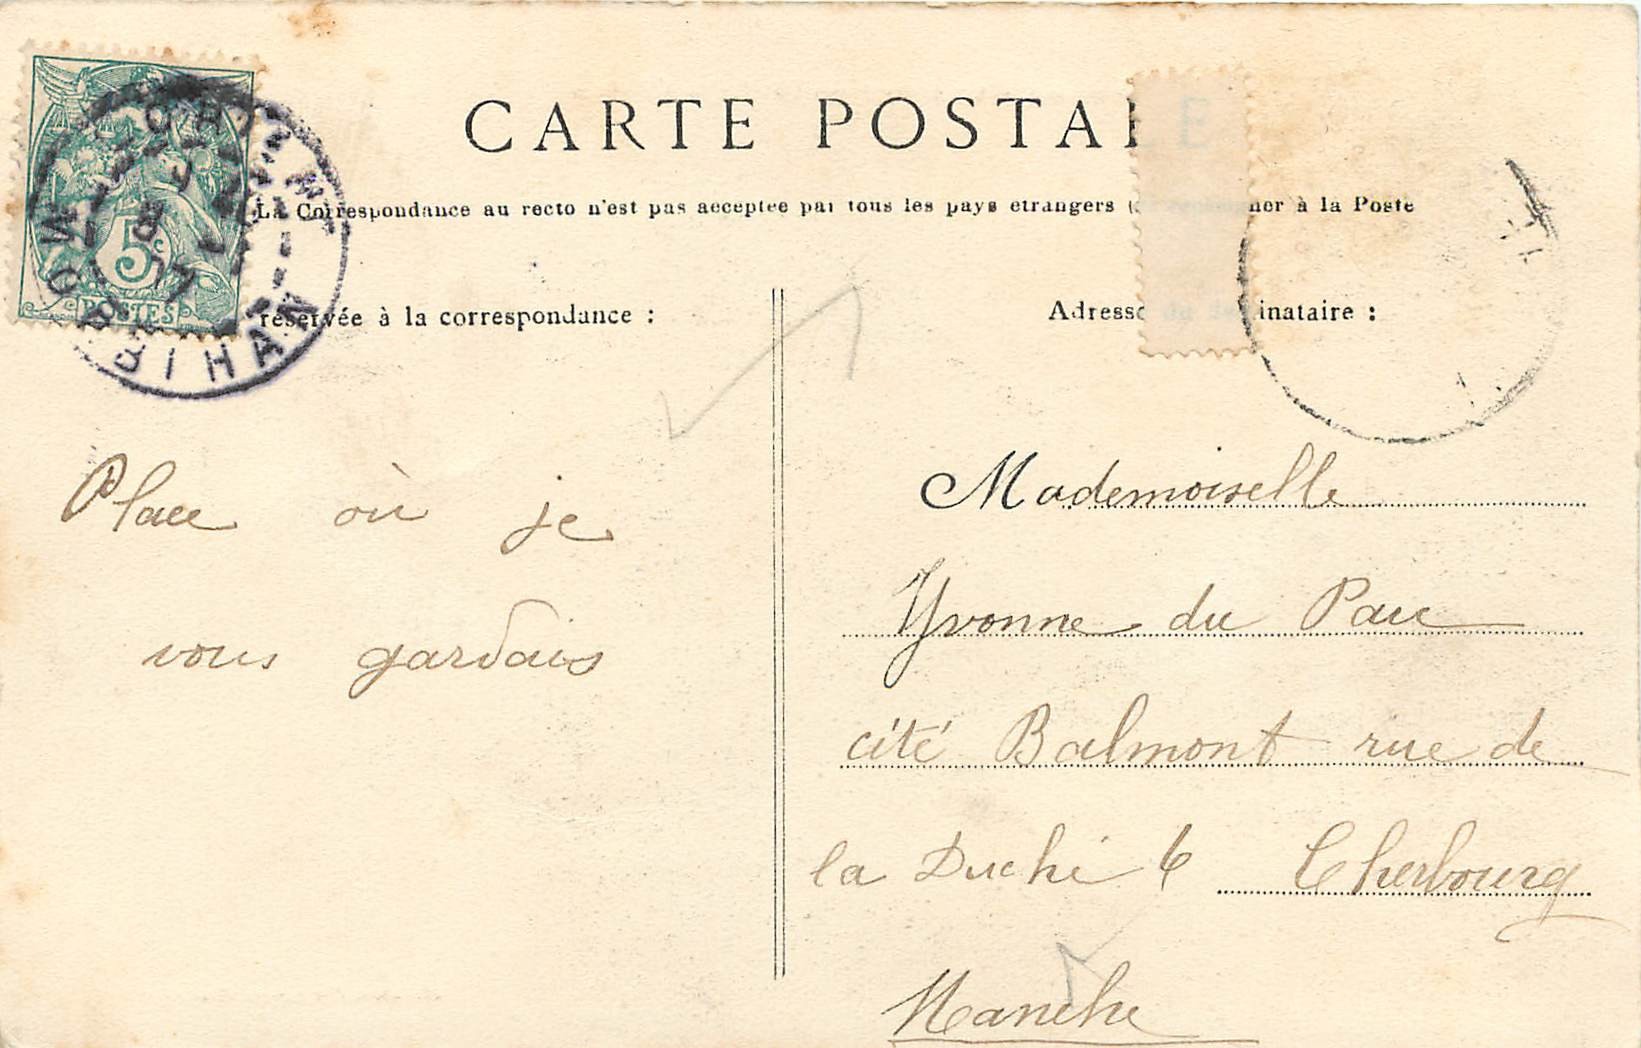 CARTE POSTALE
La Correspondance au recto n'est pas acceptée par tous les pays étrangers à la Poste
réservée à la correspondance :
Adresse du destinataire :
5c
POSTES
MORBIHAN
Place où je
vous gardais
Mademoiselle
Yvonne du Parc
cité Balmont rue de
la Duché 6 Cherbourg
Manche